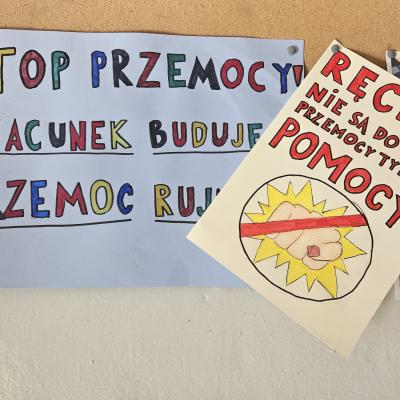 TOP PRZEMOCY!
ACUNEK BUDUJE
ZEMOC RUJ
RĘC
NIE SĄ DO
PRZEMOCY TY
POMOCY